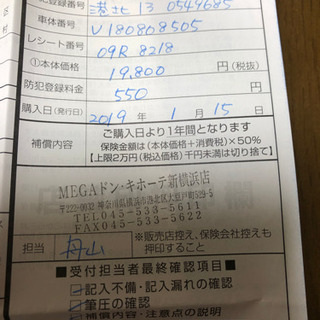 犯登録番号 港北 13 0549685
車体番号 V180808505
レシート番号 09R 8218
①本体価格 19,800 円(税抜)
防犯登録料金 550 円
購入日(発行日) 2019 年 1 月 15 日
補償内容 ご購入日より1年間となります
保険金額は(本体価格+消費税)×50%
【上限2万円(税込価格)千円未満は切り捨て】
MEGAドン・キホーテ新横浜店
〒222-0032 神奈川県横浜市港北区大豆戸町529-5
TEL045-533-5611
FAX045-533-5622
担当 丹山 ※販売店控え、保険会社控えも
押印すること
■受付担当者最終確認項目■
記入不備・記入漏れの確認
筆圧の確認
補償内容・注意点の説明